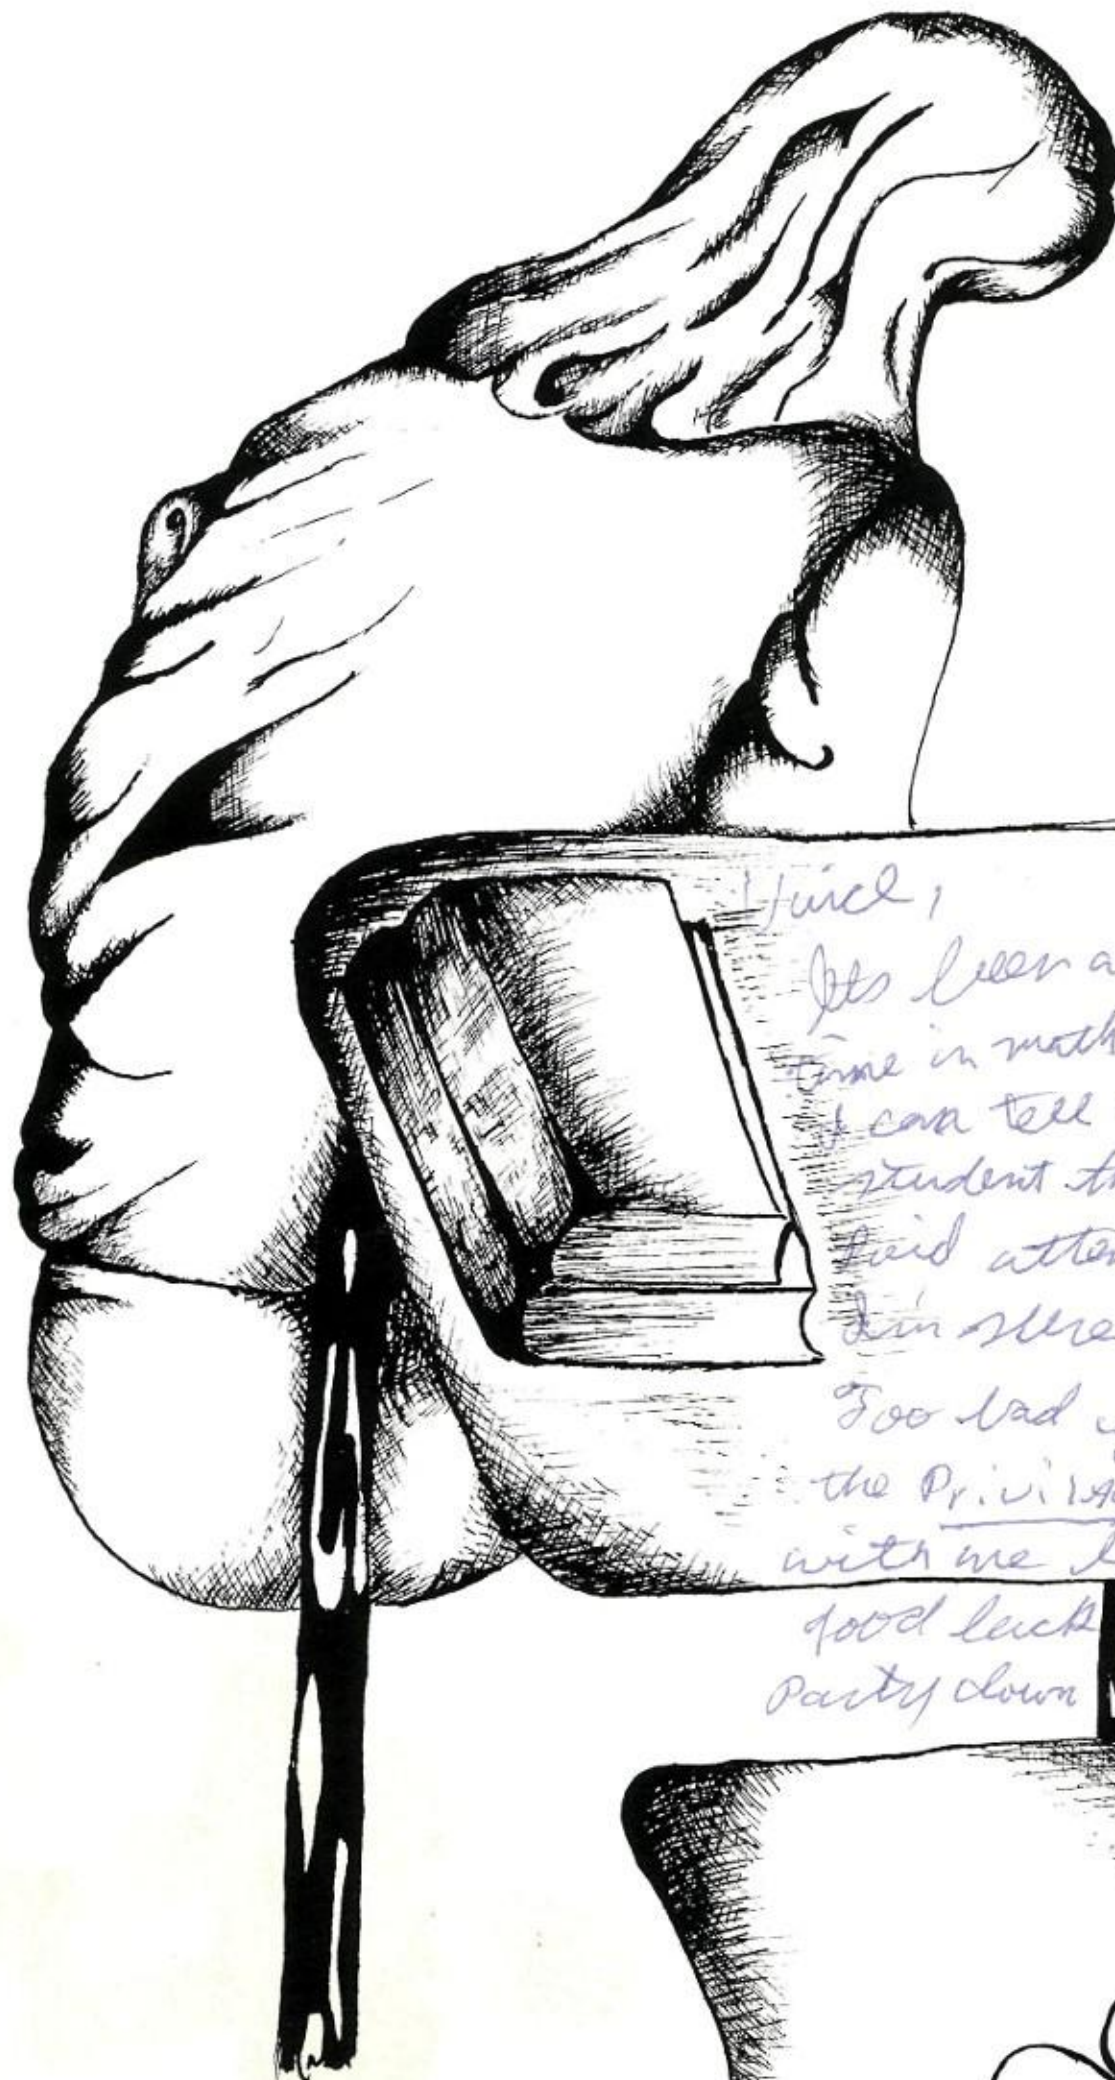 Its been a
time in math
I can tell
student th
paid atten
Im sure
Too bad
the Privi
with me
good luck
Party down